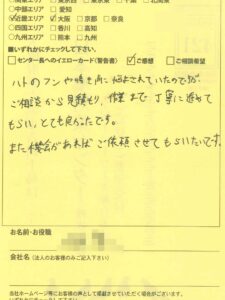 □中部エリア □愛知
☑近畿エリア ☑大阪 □京都 □奈良
□四国エリア □香川 □高知
□九州エリア □熊本 □九州
■いずれかにチェックして下さい。
□センター長へのイエローカード(警告書) ☑ご感想 □ご相談希望
ハトのフンや鳴き声に悩まされていたのですが
ご相談から見積もり、作業まで丁寧に進めて
もらい、とても良かったです。
また機会があればご依頼させてもらいたいです。
お名前・お役職
会社名(法人のお客様のみご記入下さい)
当社ホームページ等にお客様の声として掲載させていただく場合がございます。